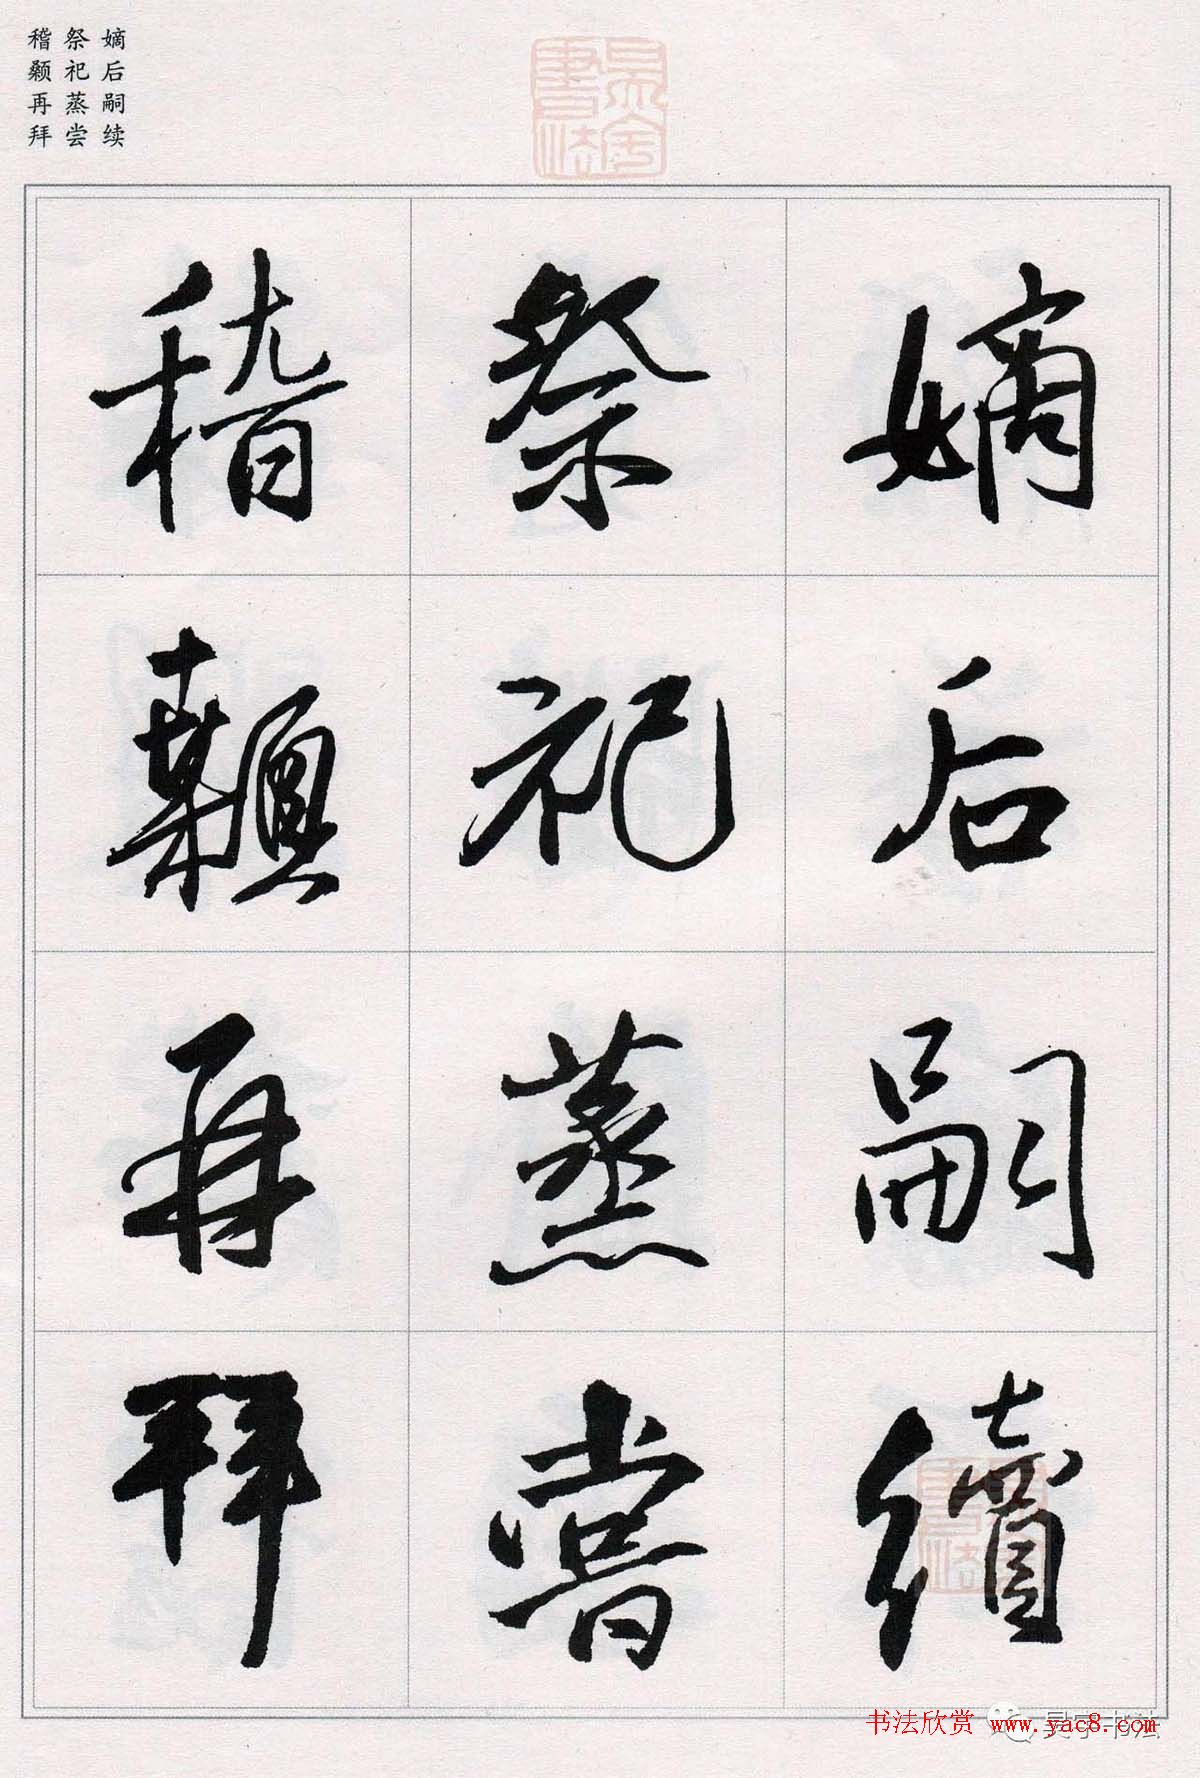 嫡后嗣续
祭祀蒸尝
稽颡再拜
嫡后嗣續
祭祀蒸嘗
稽顙再拜
书法欣赏 www.yac8.com